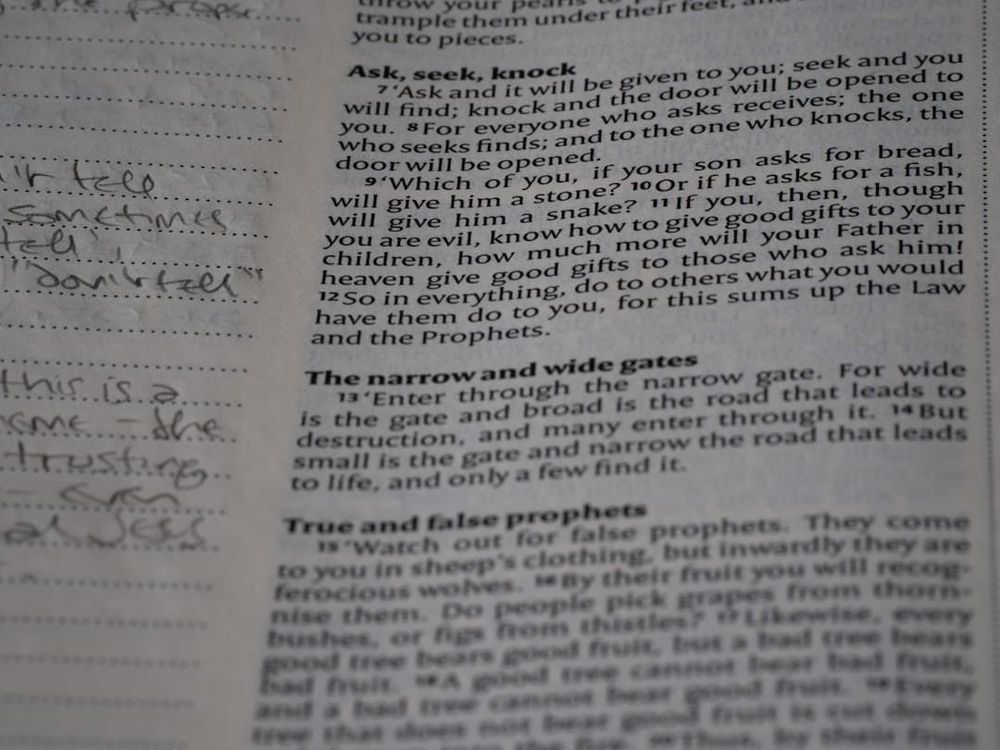 throw your pearls to
trample them under their feet, and
you to pieces.
Ask, seek, knock
7 ‘Ask and it will be given to you; seek and you
will find; knock and the door will be opened to
you. 8 For everyone who asks receives; the one
who seeks finds; and to the one who knocks, the
door will be opened.
9 ‘Which of you, if your son asks for bread,
will give him a stone? 10 Or if he asks for a fish,
will give him a snake? 11 If you, then, though
you are evil, know how to give good gifts to your
children, how much more will your Father in
heaven give good gifts to those who ask him!
12 So in everything, do to others what you would
have them do to you, for this sums up the Law
and the Prophets.
The narrow and wide gates
13 ‘Enter through the narrow gate. For wide
is the gate and broad is the road that leads to
destruction, and many enter through it. 14 But
small is the gate and narrow the road that leads
to life, and only a few find it.
True and false prophets
15 ‘Watch out for false prophets. They come
to you in sheep’s clothing, but inwardly they are
ferocious wolves. 16 By their fruit you will recog-
nise them. Do people pick grapes from thorn-
bushes, or figs from thistles? 17 Likewise, every
good tree bears good fruit, but a bad tree bears
bad fruit. 18 A good tree cannot bear bad fruit,
and a bad tree cannot bear good fruit. 19 Every
tree that does not bear good fruit is cut down
the fire. Thus, by their fruit
tell
sometimes
tell’,
"don't tell"
this is a
the
trusting
even